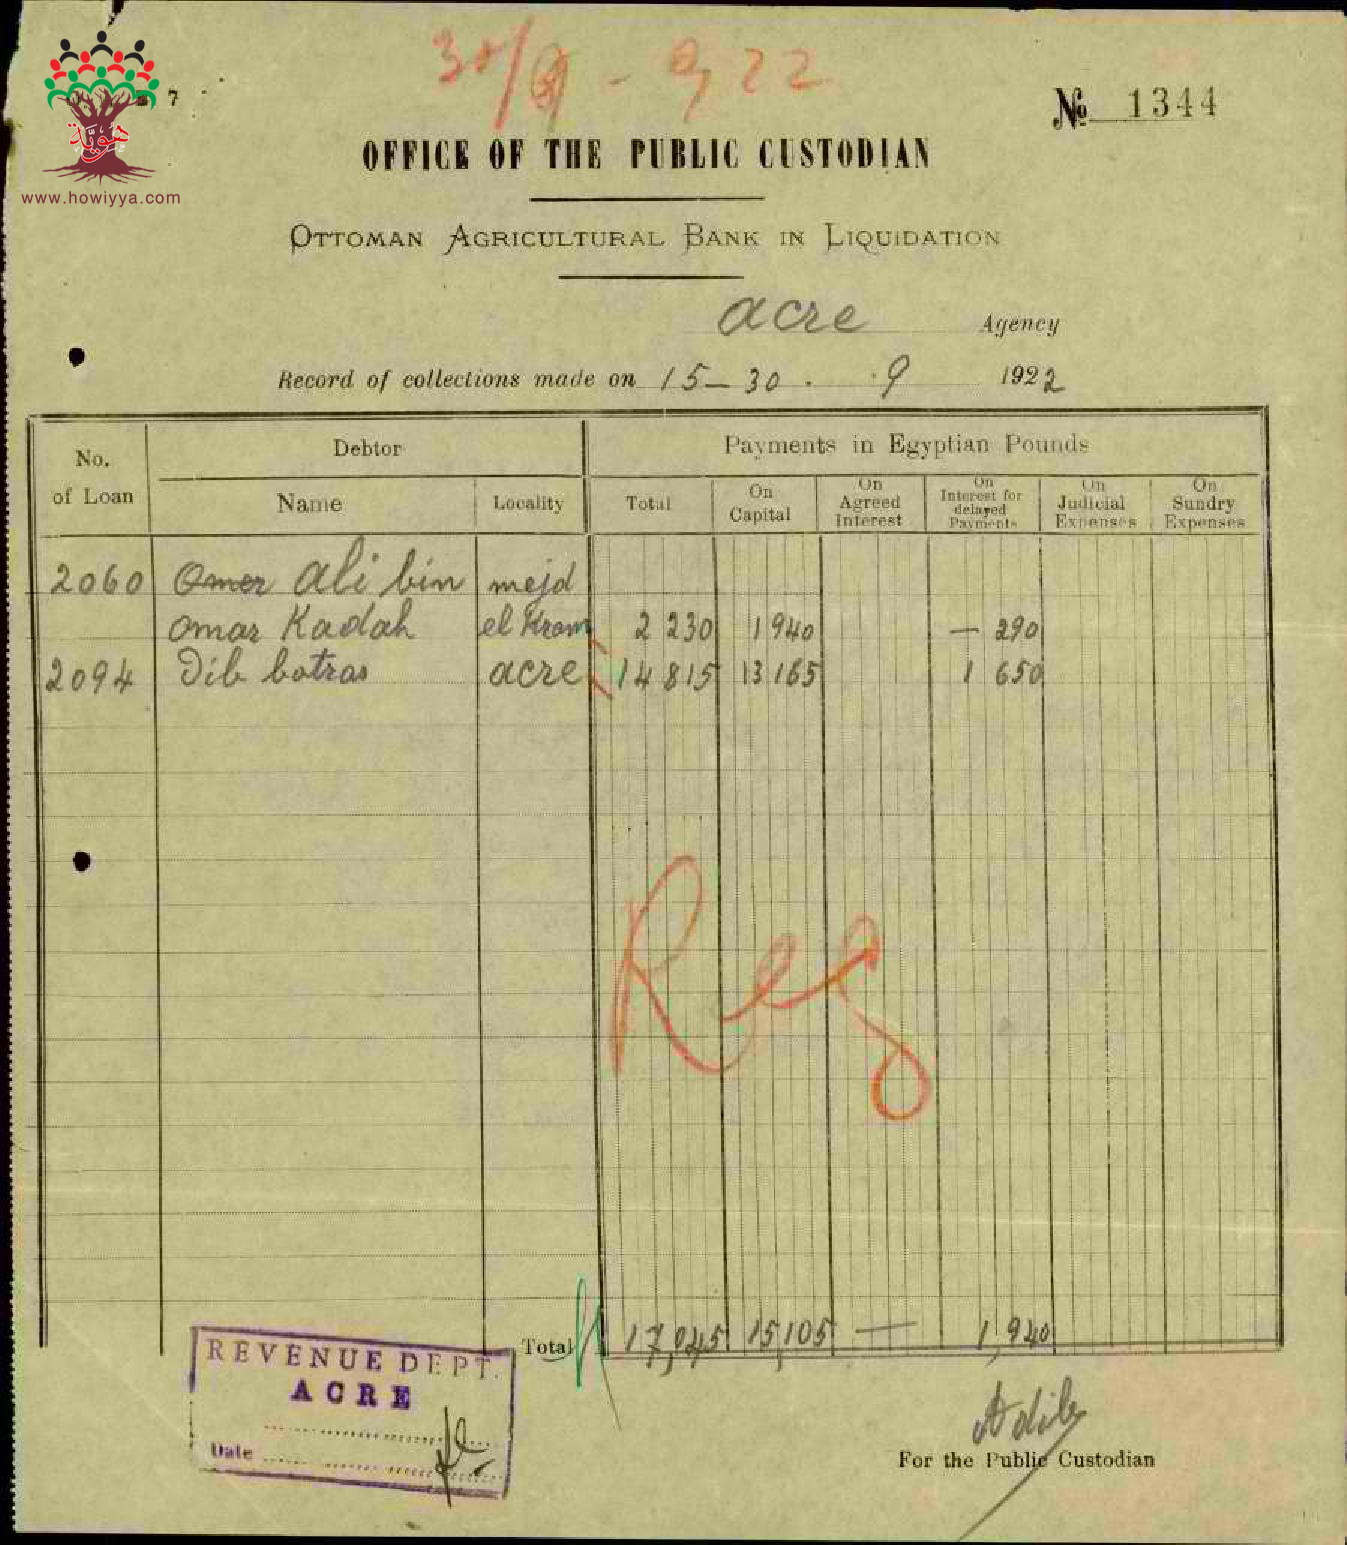 30/9 - 9 22
7
هويّة
www.howiyya.com
No 1344
OFFICE OF THE PUBLIC CUSTODIAN
OTTOMAN AGRICULTURAL BANK IN LIQUIDATION
acre Agency
Record of collections made on 15-30. . 9 1922
No. of Loan Debtor Payments in Egyptian Pounds
Name Locality Total On Capital On Agreed Interest On Interest for delayed Payments On Judicial Expenses On Sundry Expenses
2060 Omer Ali bin mejd
Omar Kadah el Krom 2 230 1 940 — 290
2094 Dib botras acre 14 815 13 165 1 650
Reg
Total 17,045 15,105 — 1,940
REVENUE DEPT.
ACRE
Date
Adib
For the Public Custodian